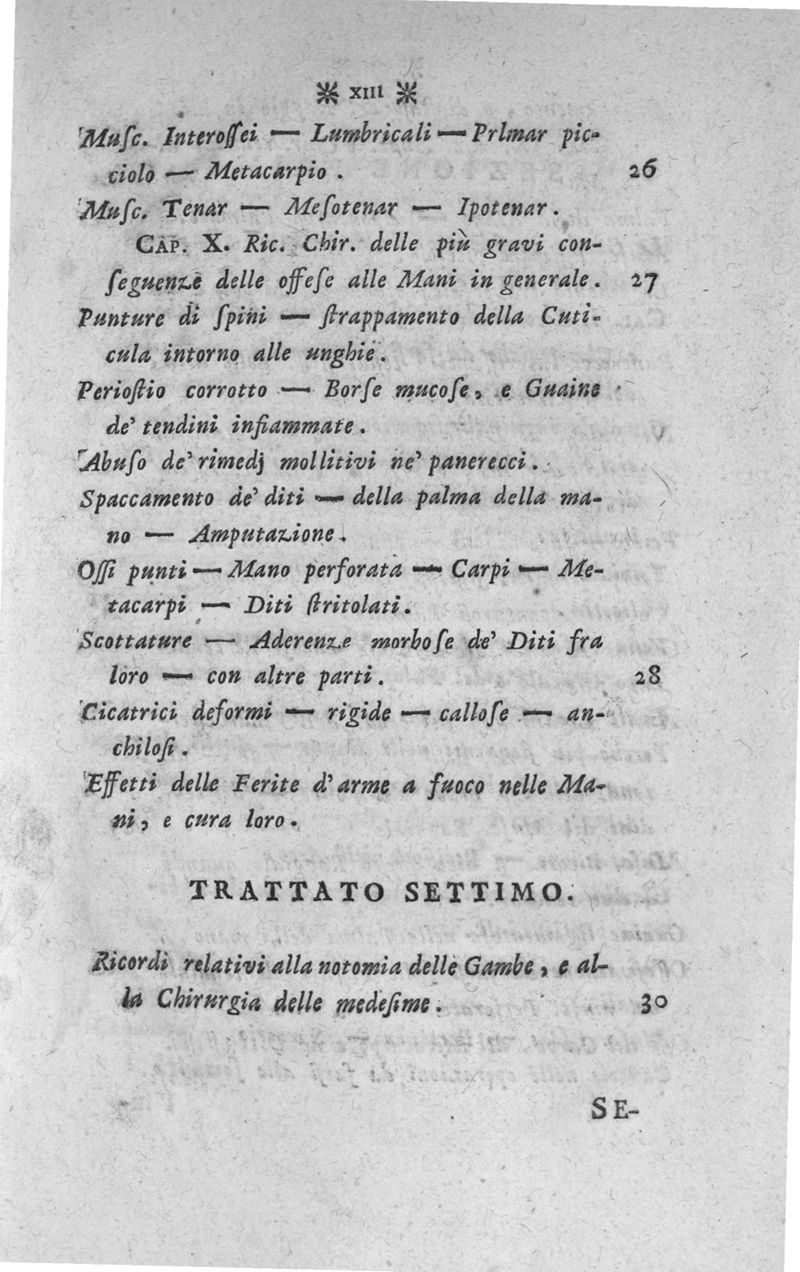 ※ XIII ※
Muſc. Interoſſei — Lumbricali — Prlmar pic-
ciolo — Metacarpio . 26
Muſc. Tenar — Meſotenar — Ipotenar .
CAP. X. Ric. Chir. delle più gravi con-
ſeguenze delle offeſe alle Mani in generale . 27
Punture di ſpini — ſtrappamento della Cuti-
cula intorno alle unghie .
Perioſtio corrotto — Borſe mucoſe, e Guaine
de' tendini infiammate .
Abuſo de' rimedj mollitivi ne' panerecci .
Spaccamento de' diti — della palma della ma-
no — Amputazione .
Oſſi punti — Mano perforata — Carpi — Me-
tacarpi — Diti ſtritolati .
Scottature — Aderenze morboſe de' Diti fra
loro — con altre parti . 28
Cicatrici deformi — rigide — calloſe — an-
chiloſi .
Effetti delle Ferite d'arme a fuoco nelle Ma-
ni, e cura loro .
TRATTATO SETTIMO.
Ricordi relativi alla notomia delle Gambe, e al-
la Chirurgia delle medeſime . 30
SE-